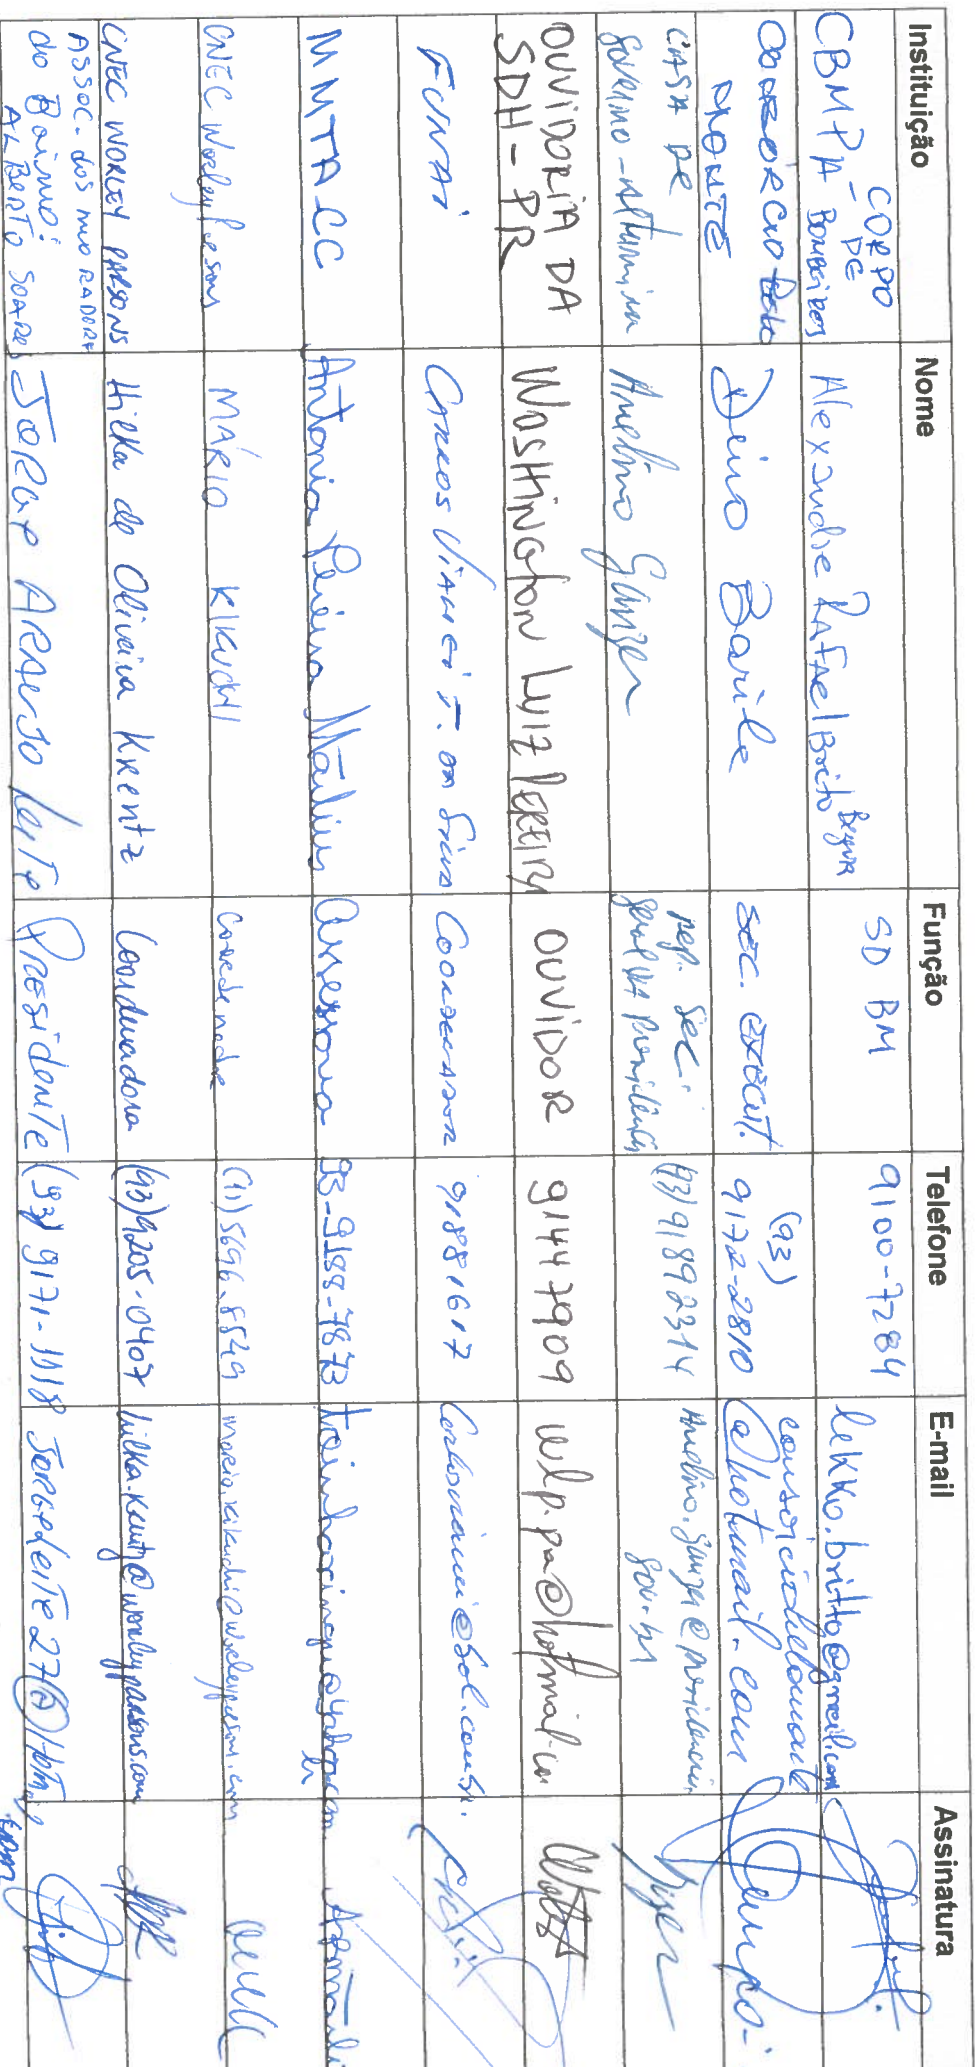 Instituição Nome Função Telefone E-mail Assinatura
CBMPA - CORPO DE BOMBEIROS Alexandre Rafael Brito SD BM 9100-7284 lekko.britto@gmail.com
CONSÓRCIO BELO MONTE Deino Barile SEC. EXECUT. (93) 9172-2810 consorciobelomonte@hotmail.com
CASA DE Governo - Altamira Avelino Ganzer Rep. Sec. Geral da Presidência (93) 91892314 Avelino.ganzer@presidencia.gov.br
OUVIDORIA DA SDH-PR WASHINGTON LUIZ PEREIRA OUVIDOR 91447909 wlp.pa@hotmail.
FUNAI CARLOS 91881617
MMTACC Antonia Pereira Martins 93-9188-7873
CNEC WorleyParsons MÁRIO KIKUCHI Coordenador (11) 5696.8549 mario.kikuchi@worleyparsons.com
CNEC WORLEY PARSONS Hilka de Oliveira Krentz Coordenadora (93) 9205-0407 hilka.krentz@worleyparsons.com
ASSOC. dos moRADORES do Bairro: ALBERTO SOARES JORGE ARAUJO Leite PRESIdente (93) 9171-1118 JORGELEITE27@